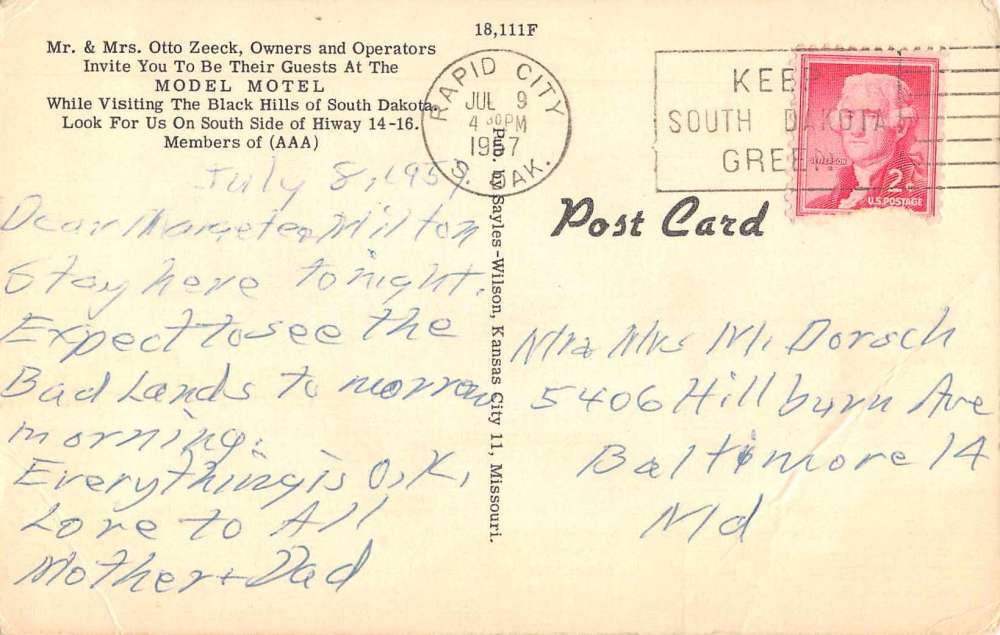 18,111F
Mr. & Mrs. Otto Zeeck, Owners and Operators
Invite You To Be Their Guests At The
MODEL MOTEL
While Visiting The Black Hills of South Dakota.
Look For Us On South Side of Hiway 14-16.
Members of (AAA)
July 8, 1957
Dear Margete + Milton
Stay here tonight.
Expect to see the
Bad Lands to morrow
morning.
Everything is O.K.
Love to All
Mother + Dad
Pub. by Sayles-Wilson, Kansas City 11, Missouri.
RAPID CITY
JUL 9
4 30 PM
1957
S. DAK.
KEEP
SOUTH DAKOTA
GREEN
JEFFERSON
2¢
U.S. POSTAGE
Post Card
Mr a Mrs M. Dorsch
5406 Hillburn Ave
Baltimore 14
Md